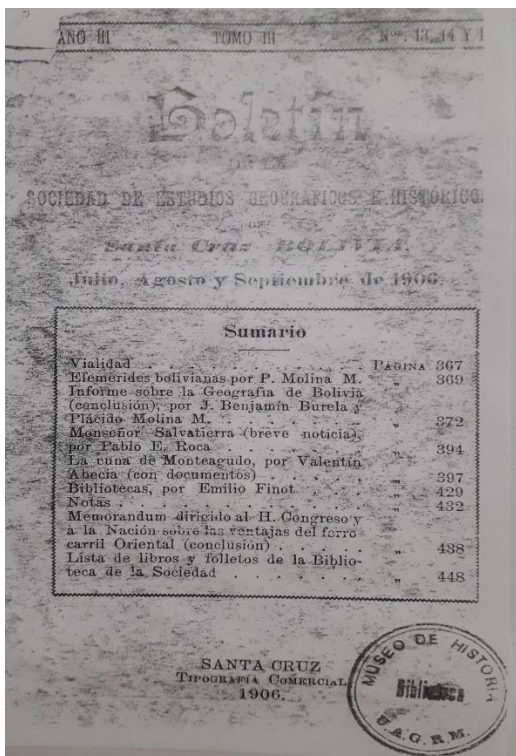 AÑO III TOMO III Nos. 13, 14 Y 1
Boletín
DE LA
SOCIEDAD DE ESTUDIOS GEOGRAFICOS E HISTORICO
DE
Santa Cruz BOLIVIA.
Julio, Agosto y Septiembre de 1906.
Sumario
Vialidad . . . . . . . . . . . . PAGINA 367
Efemérides bolivianas por P. Molina M. „ 369
Informe sobre la Geografía de Bolivia
(conclusión), por J. Benjamín Burela y
Plácido Molina M. . . . . . . . . „ 372
Monseñor Salvatierra (breve noticia),
por Pablo E. Roca . . . . . . . . „ 394
La cuna de Monteagudo, por Valentín
Abecia (con documentos) . . . . . „ 397
Bibliotecas, por Emilio Finot . . . . „ 429
Notas . . . . . . . . . . . . . „ 432
Memorandum dirigido al H. Congreso y
a la Nación sobre las ventajas del ferro
carril Oriental (conclusión) . . . . „ 438
Lista de libros y folletos de la Biblio-
teca de la Sociedad . . . . . . . „ 448
SANTA CRUZ
TIPOGRAFÍA COMERCIAL
1906.
MUSEO DE HISTORIA
Biblioteca
U.A.G.R.M.